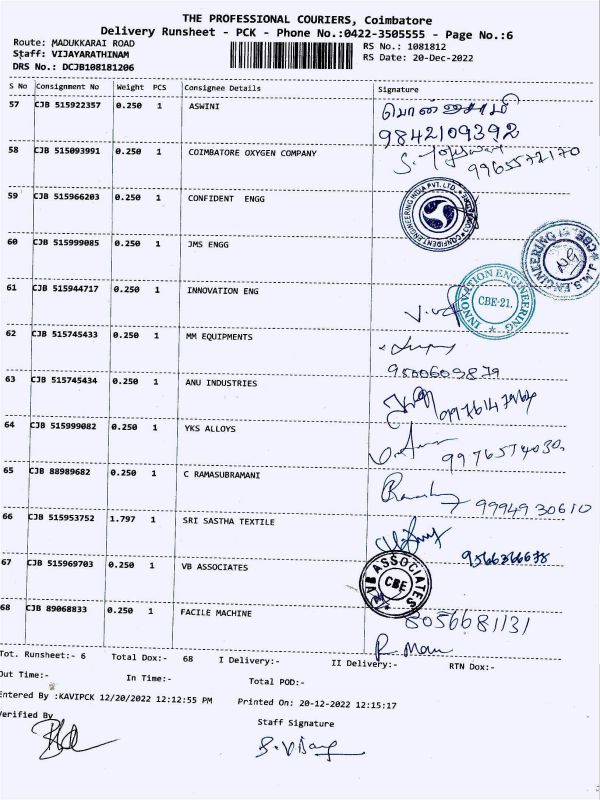 THE PROFESSIONAL COURIERS, Coimbatore
Delivery Runsheet - PCK - Phone No.:0422-3505555 - Page No.:6
Route: MADUKKARAI ROAD
RS No.: 1081812
Staff: VIJAYARATHINAM
RS Date: 20-Dec-2022
DRS No.: DCJB108181206
S No Consignment No Weight PCS Consignee Details Signature
57 CJB 515922357 0.250 1 ASWINI
9842109392
58 CJB 515093991 0.250 1 COIMBATORE OXYGEN COMPANY
9965572170
59 CJB 515966203 0.250 1 CONFIDENT ENGG
CONFIDENT ENGINEERING INDIA PVT. LTD.
60 CJB 515999085 0.250 1 JMS ENGG
J.M.S ENGINEERING CBE
61 CJB 515944717 0.250 1 INNOVATION ENG
INNOVATION ENGINEERING CBE-21.
62 CJB 515745433 0.250 1 MM EQUIPMENTS
9500609879
63 CJB 515745434 0.250 1 ANU INDUSTRIES
64 CJB 515999082 0.250 1 YKS ALLOYS
9976574030
65 CJB 88989682 0.250 1 C RAMASUBRAMANI
9994930610
66 CJB 515953752 1.797 1 SRI SASTHA TEXTILE
9566366678
67 CJB 515969703 0.250 1 VB ASSOCIATES
VB ASSOCIATES CBE
68 CJB 89068833 0.250 1 FACILE MACHINE
8056681131
Tot. Runsheet:- 6 Total Dox:- 68 I Delivery:- II Delivery:- RTN Dox:-
Out Time:- In Time:- Total POD:-
Entered By :KAVIPCK 12/20/2022 12:12:55 PM Printed On: 20-12-2022 12:15:17
Verified By
Staff Signature